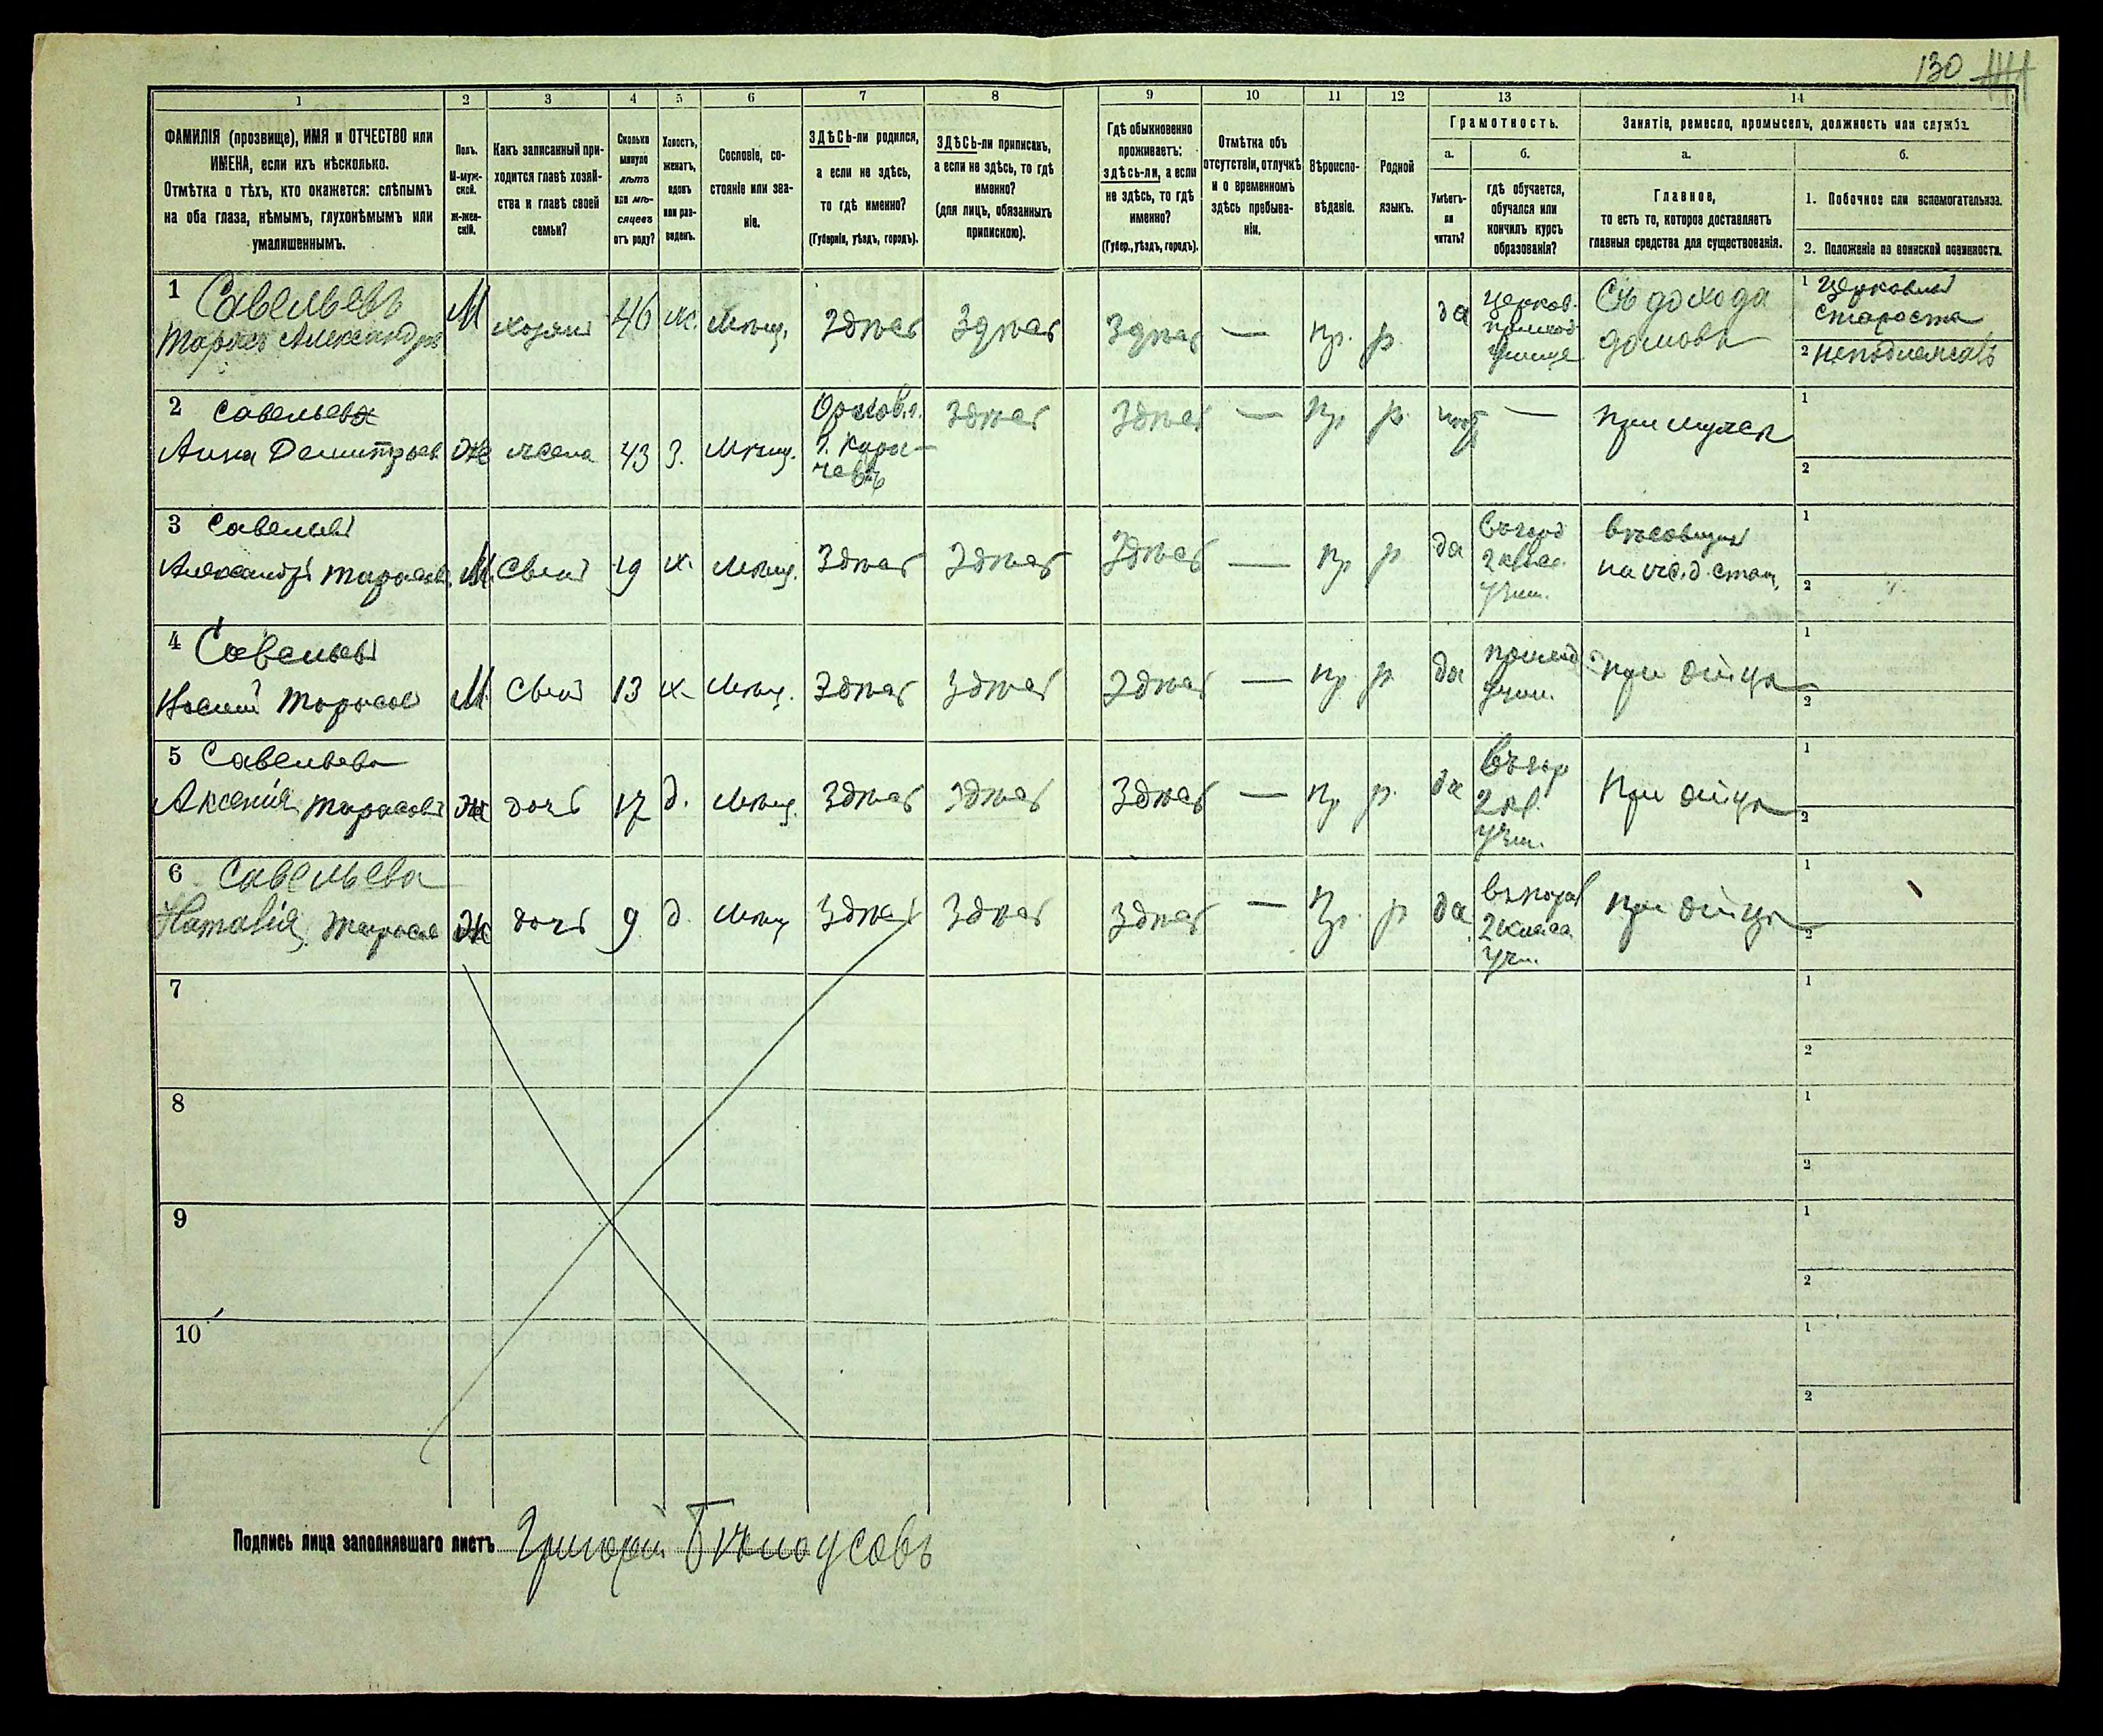 130
1
2
3
4
5
6
7
8
9
10
11
12
13
14
ФАМИЛІЯ (прозвище), ИМЯ и ОТЧЕСТВО или
ИМЕНА, если ихъ нѣсколько.
Отмѣтка о тѣхъ, кто окажется: слѣпымъ
на оба глаза, нѣмымъ, глухонѣмымъ или
умалишеннымъ.
Полъ.
М-муж-
ской.
Ж-жен-
скій.
Какъ записанный при-
ходится главѣ хозяй-
ства и главѣ своей
семьи?
Сколько
минуло
лѣтъ
или мѣ-
сяцевъ
отъ роду?
Холостъ,
женатъ,
вдовъ
или раз-
веденъ.
Сословіе, со-
стояніе или зва-
ніе.
ЗДѢСЬ-ли родился,
а если не здѣсь,
то гдѣ именно?
(Губернія, уѣздъ, городъ).
ЗДѢСЬ-ли приписанъ,
а если не здѣсь, то гдѣ
именно?
(для лицъ, обязанныхъ
припискою).
Гдѣ обыкновенно
проживаетъ:
здѣсь-ли, а если
не здѣсь, то гдѣ
именно?
(Губер., уѣздъ, городъ).
Отмѣтка объ
отсутствіи, отлучкѣ
и о временномъ
здѣсь пребыва-
ніи.
Вѣроиспо-
вѣданіе.
Родной
языкъ.
Грамотность.
а.
Умѣетъ-
ли
читать?
б.
гдѣ обучается,
обучался или
кончилъ курсъ
образованія?
Занятіе, ремесло, промыселъ, должность или служба.
а.
Главное,
то есть то, которое доставляетъ
главныя средства для существованія.
б.
1. Побочное или вспомогательное.
2. Положеніе по воинской повинности.
1 Савельевъ
Тарасъ Александров
М
хозяин
46
ж.
Мѣщ.
Здѣсь
Здѣсь
Здѣсь
—
пр.
р.
да
церков.
приход
училище
Съ дохода
домовъ
1 Церковный
Староста
2 неподлежитъ
2 Савельева
Анна Демитрьев
Ж
жена
43
З.
Мѣщ.
Орлов. г.
г. Кара-
чевъ
Здѣсь
Здѣсь
—
пр
р.
нѣт
—
при мужѣ
1
2
3 Савельев
Александр Тарасов
М.
Сын
19
х.
Мѣщ.
Здѣсь
Здѣсь
Здѣсь
—
пр
р
да
въ город
2 класс.
учил.
вѣсовщик
на ж.д. стан.
1
2
4 Савельев
Тарасов
М.
Сын
13
х.
Мѣщ.
Здѣсь
Здѣсь
Здѣсь
—
пр
р.
да
приход
учил.
при отцѣ
1
2
5 Савельева
Аксенія Тарасов
Ж
дочь
17
д.
Мѣщ.
Здѣсь
Здѣсь
Здѣсь
—
пр
р.
да
въ гор
2 кл.
учил.
При отцѣ
1
2
6 Савельева
Наталія Тарасов
Ж
дочь
9
д.
Мѣщ
Здѣсь
Здѣсь
Здѣсь
—
Пр.
р
да
2 класса
уч.
при отцѣ
1
2
7
1
2
8
1
2
9
1
2
10
1
2
Подпись лица заполнявшаго листъ Григорій Бѣлоусовъ